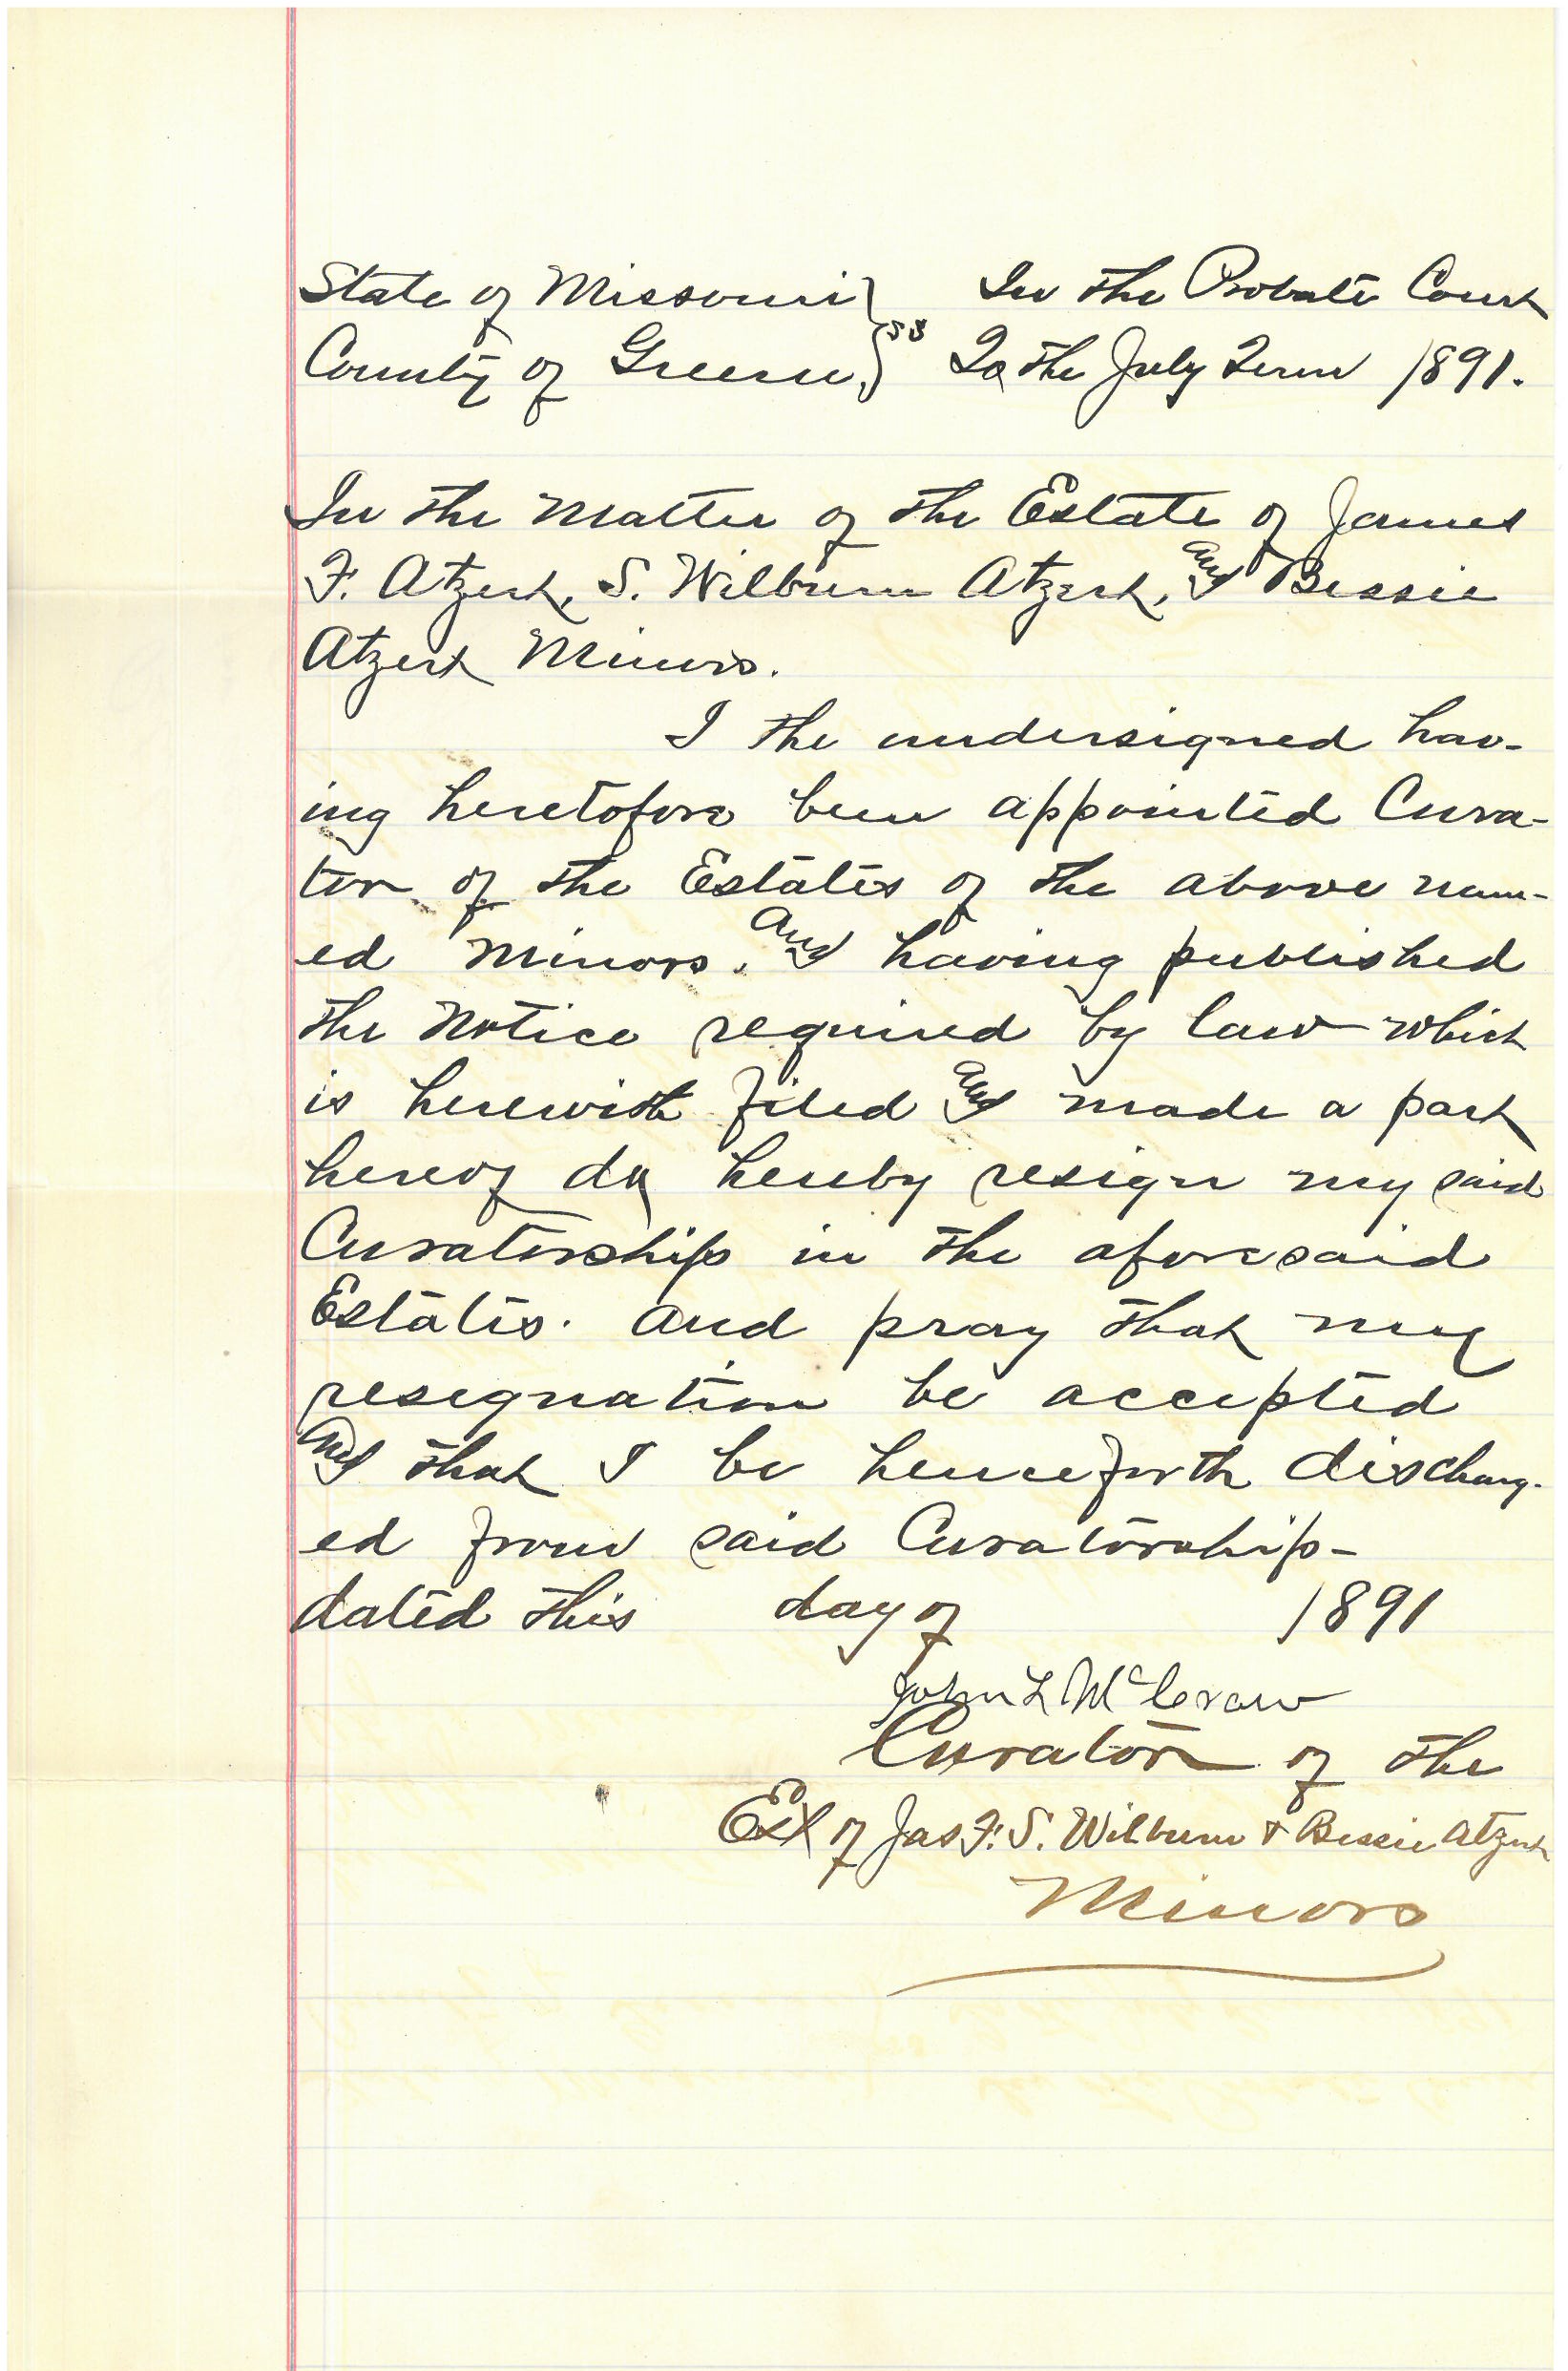 State of Missouri } In the Probate Court
County of Greene, } ss To the July Term 1891.
In the Matter of the Estate of James
F. Atzert, S. Wilburn Atzert, and Bessie
Atzert Minors.
I the undersigned hav-
ing heretofore been appointed Cura-
tor of the Estates of the above nam-
ed Minors, and having published
the Notice required by law which
is herewith filed and made a part
hereof do hereby resign my said
Curatorship in the aforesaid
Estates. And pray that my
resignation be accepted
and that I be henceforth discharg-
ed from said Curatorship-
dated this day of 1891
John L McCraw
Curator of the
Est of Jas F. S. Wilburn & Bessie Atzert
Minors